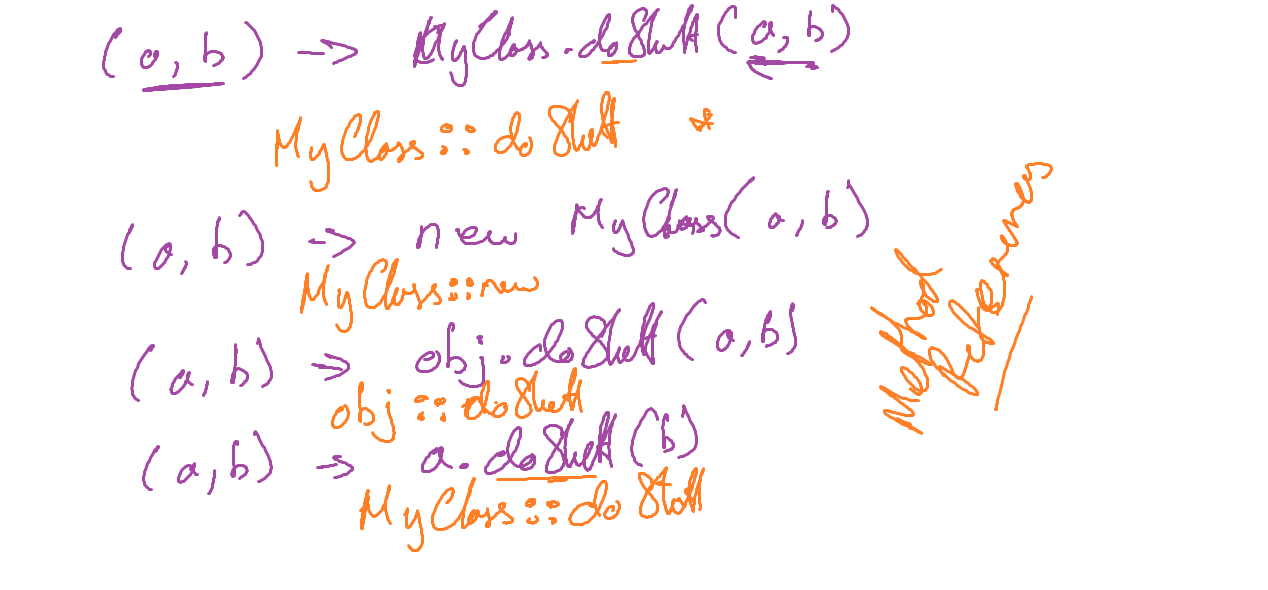 (a, b) -> MyClass.doStuff(a, b)
MyClass::doStuff *
(a, b) -> new MyClass(a, b)
MyClass::new
(a, b) -> obj.doStuff(a, b)
obj::doStuff
(a, b) -> a.doStuff(b)
MyClass::doStuff
Method
References